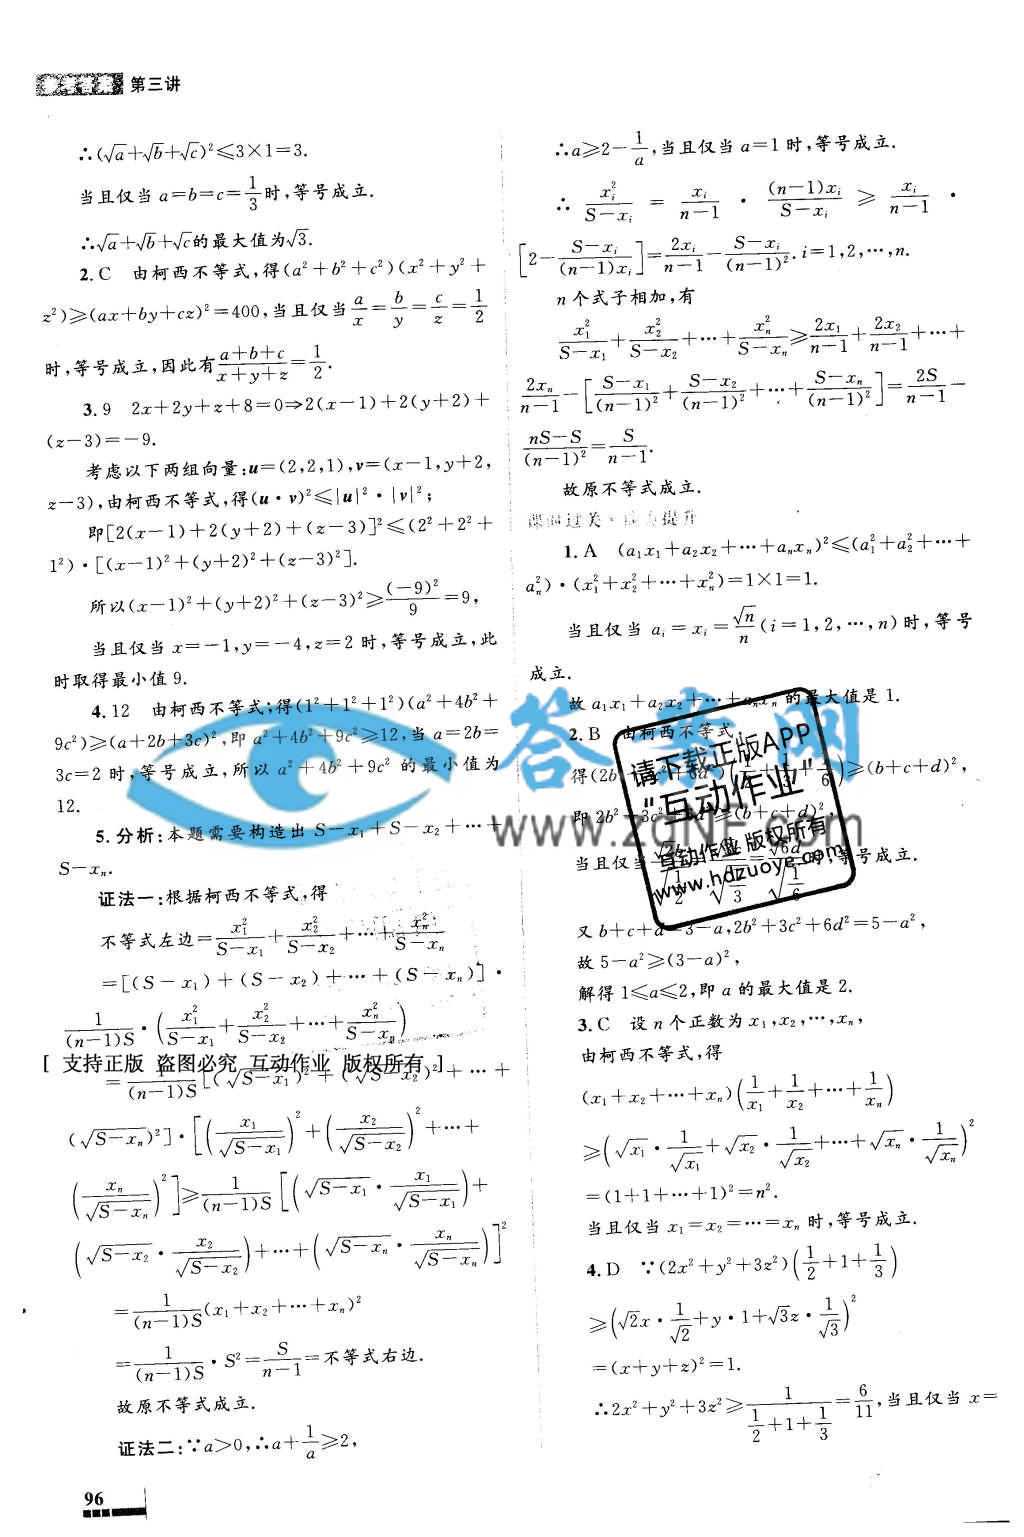 参考答案 第三讲
∴(√a+√b+√c)²≤3×1=3.
当且仅当 a=b=c=1/3时,等号成立.
∴√a+√b+√c的最大值为√3.
2.C 由柯西不等式,得(a²+b²+c²)(x²+y²+
z²)≥(ax+by+cz)²=400,当且仅当a/x=b/y=c/z=1/2
时,等号成立,因此有(a+b+c)/(x+y+z)=1/2.
3.9 2x+2y+z+8=0⇒2(x-1)+2(y+2)+
(z-3)=-9.
考虑以下两组向量:u=(2,2,1),v=(x-1,y+2,
z-3),由柯西不等式,得(u·v)²≤|u|²·|v|²;
即[2(x-1)+2(y+2)+(z-3)]²≤(2²+2²+
1²)·[(x-1)²+(y+2)²+(z-3)²].
所以(x-1)²+(y+2)²+(z-3)²≥(-9)²/9=9,
当且仅当 x=-1,y=-4,z=2 时,等号成立,此
时取得最小值 9.
4.12 由柯西不等式,得(1²+1²+1²)(a²+4b²+
9c²)≥(a+2b+3c)²,即 a²+4b²+9c²≥12,当 a=2b=
3c=2 时,等号成立,所以 a²+4b²+9c² 的最小值为
12.
5.分析:本题需要构造出 S-x₁+S-x₂+⋯+
S-xₙ.
证法一:根据柯西不等式,得
不等式左边=x₁²/(S-x₁)+x₂²/(S-x₂)+⋯+xₙ²/(S-xₙ)
=[(S-x₁)+(S-x₂)+⋯+(S-xₙ)]·
1/((n-1)S)·(x₁²/(S-x₁)+x₂²/(S-x₂)+⋯+xₙ²/(S-xₙ))
[ 支持正版 盗图必究 互动作业 版权所有 ]
=1/((n-1)S)[(√(S-x₁))²+(√(S-x₂))²+⋯+
(√(S-xₙ))²]·[(x₁/√(S-x₁))²+(x₂/√(S-x₂))²+⋯+
(xₙ/√(S-xₙ))²]≥1/((n-1)S)[(√(S-x₁)·x₁/√(S-x₁))+
(√(S-x₂)·x₂/√(S-x₂))+⋯+(√(S-xₙ)·xₙ/√(S-xₙ))]²
=1/((n-1)S)(x₁+x₂+⋯+xₙ)²
=1/((n-1)S)·S²=S/(n-1)=不等式右边.
故原不等式成立.
证法二:∵a>0,∴a+1/a≥2,
96
∴a≥2-1/a,当且仅当 a=1 时,等号成立.
∴ xᵢ²/(S-xᵢ) = xᵢ/(n-1) · (n-1)xᵢ/(S-xᵢ) ≥ xᵢ/(n-1) ·
[2-(S-xᵢ)/((n-1)xᵢ)]=2xᵢ/(n-1)-(S-xᵢ)/(n-1)².i=1,2,⋯,n.
n 个式子相加,有
x₁²/(S-x₁)+x₂²/(S-x₂)+⋯+xₙ²/(S-xₙ)≥2x₁/(n-1)+2x₂/(n-1)+⋯+
2xₙ/(n-1)-[(S-x₁)/(n-1)²+(S-x₂)/(n-1)²+⋯+(S-xₙ)/(n-1)²]=2S/(n-1)-
(nS-S)/(n-1)²=S/(n-1).
故原不等式成立.
课时过关·能力提升
1.A (a₁x₁+a₂x₂+⋯+aₙxₙ)²≤(a₁²+a₂²+⋯+
aₙ²)·(x₁²+x₂²+⋯+xₙ²)=1×1=1.
当且仅当 aᵢ=xᵢ=√n/n(i=1,2,⋯,n)时,等号
成立.
故 a₁x₁+a₂x₂+⋯+aₙxₙ 的最大值是 1.
2.B 由柯西不等式,
得(2b²+3c²+6d²)(1/2+1/3+1/6)≥(b+c+d)²,
即 2b²+3c²+6d²≥(b+c+d)².
当且仅当√2b/√(1/2)=√3c/√(1/3)=√6d/√(1/6)时,等号成立.
又 b+c+d=3-a,2b²+3c²+6d²=5-a²,
故 5-a²≥(3-a)²,
解得 1≤a≤2,即 a 的最大值是 2.
3.C 设 n 个正数为 x₁,x₂,⋯,xₙ,
由柯西不等式,得
(x₁+x₂+⋯+xₙ)(1/x₁+1/x₂+⋯+1/xₙ)
≥(√x₁·1/√x₁+√x₂·1/√x₂+⋯+√xₙ·1/√xₙ)²
=(1+1+⋯+1)²=n².
当且仅当 x₁=x₂=⋯=xₙ 时,等号成立.
4.D ∵(2x²+y²+3z²)(1/2+1+1/3)
≥(√2x·1/√2+y·1+√3z·1/√3)²
=(x+y+z)²=1.
∴2x²+y²+3z²≥1/(1/2+1+1/3)=6/11,当且仅当 x=
答案网
www.zqnf.com
请下载正版APP
"互动作业"
互动作业 版权所有
www.hdzuoye.com